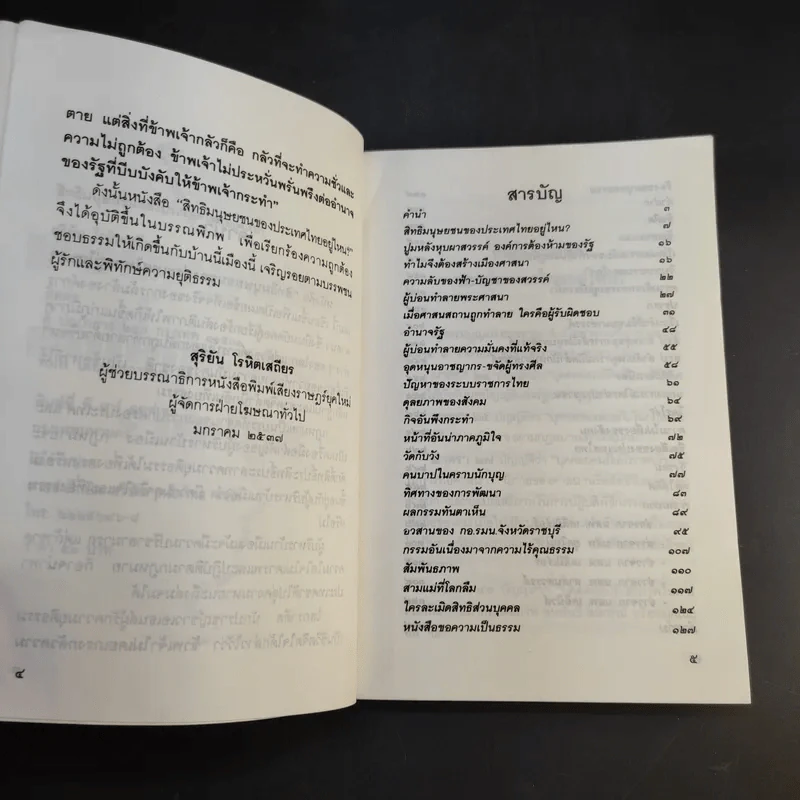 ตาย แต่สิ่งที่ข้าพเจ้ากลัวก็คือ กลัวที่จะทำความชั่วและ
ความไม่ถูกต้อง ข้าพเจ้าไม่ประหวั่นพรั่นพรึงต่ออำนาจ
ของรัฐที่บีบบังคับให้ข้าพเจ้ากระทำ"
ดังนั้นหนังสือ "สิทธิมนุษยชนของประเทศไทยอยู่ไหน?"
จึงได้อุบัติขึ้นในบรรณพิภพ เพื่อเรียกร้องความถูกต้อง
ชอบธรรมให้เกิดขึ้นกับบ้านนี้เมืองนี้ เจริญรอยตามบรรพชน
ผู้รักและพิทักษ์ความยุติธรรม
สุริยัน โรหิตเสถียร
ผู้ช่วยบรรณาธิการหนังสือพิมพ์เสียงราษฎร์ยุคใหม่
ผู้จัดการฝ่ายโฆษณาทั่วไป
มกราคม ๒๕๓๗
๔
สารบัญ
คำนำ ๓
สิทธิมนุษยชนของประเทศไทยอยู่ไหน? ๗
ปูมหลังหุบผาสวรรค์ องค์การต้องห้ามของรัฐ ๑๖
ทำไมจึงต้องสร้างเมืองศาสนา ๑๖
ความลับของฟ้า-บัญชาของสวรรค์ ๒๒
ผู้บ่อนทำลายพระศาสนา ๒๗
เมื่อศาสนสถานถูกทำลาย ใครคือผู้รับผิดชอบ ๓๑
อำนาจรัฐ ๔๘
ผู้บ่อนทำลายความมั่นคงที่แท้จริง ๕๕
อุดหนุนอาชญากร-ขจัดผู้ทรงศีล ๕๘
ปัญหาของระบบราชการไทย ๖๑
ดุลยภาพของสังคม ๖๔
กิจอันพึงกระทำ ๖๙
หน้าที่อันน่าภาคภูมิใจ ๗๒
วัดกับวัง ๗๕
คนบาปในคราบนักบุญ ๗๗
ทิศทางของการพัฒนา ๘๓
ผลกรรมทันตาเห็น ๘๙
อวสานของ กอ.รมน.จังหวัดราชบุรี ๙๕
กรรมอันเนื่องมาจากความไร้คุณธรรม ๑๐๗
สัมพันธภาพ ๑๑๐
สามแม่ที่โลกลืม ๑๑๗
ใครละเมิดสิทธิส่วนบุคคล ๑๒๔
หนังสือขอความเป็นธรรม ๑๒๗
๕